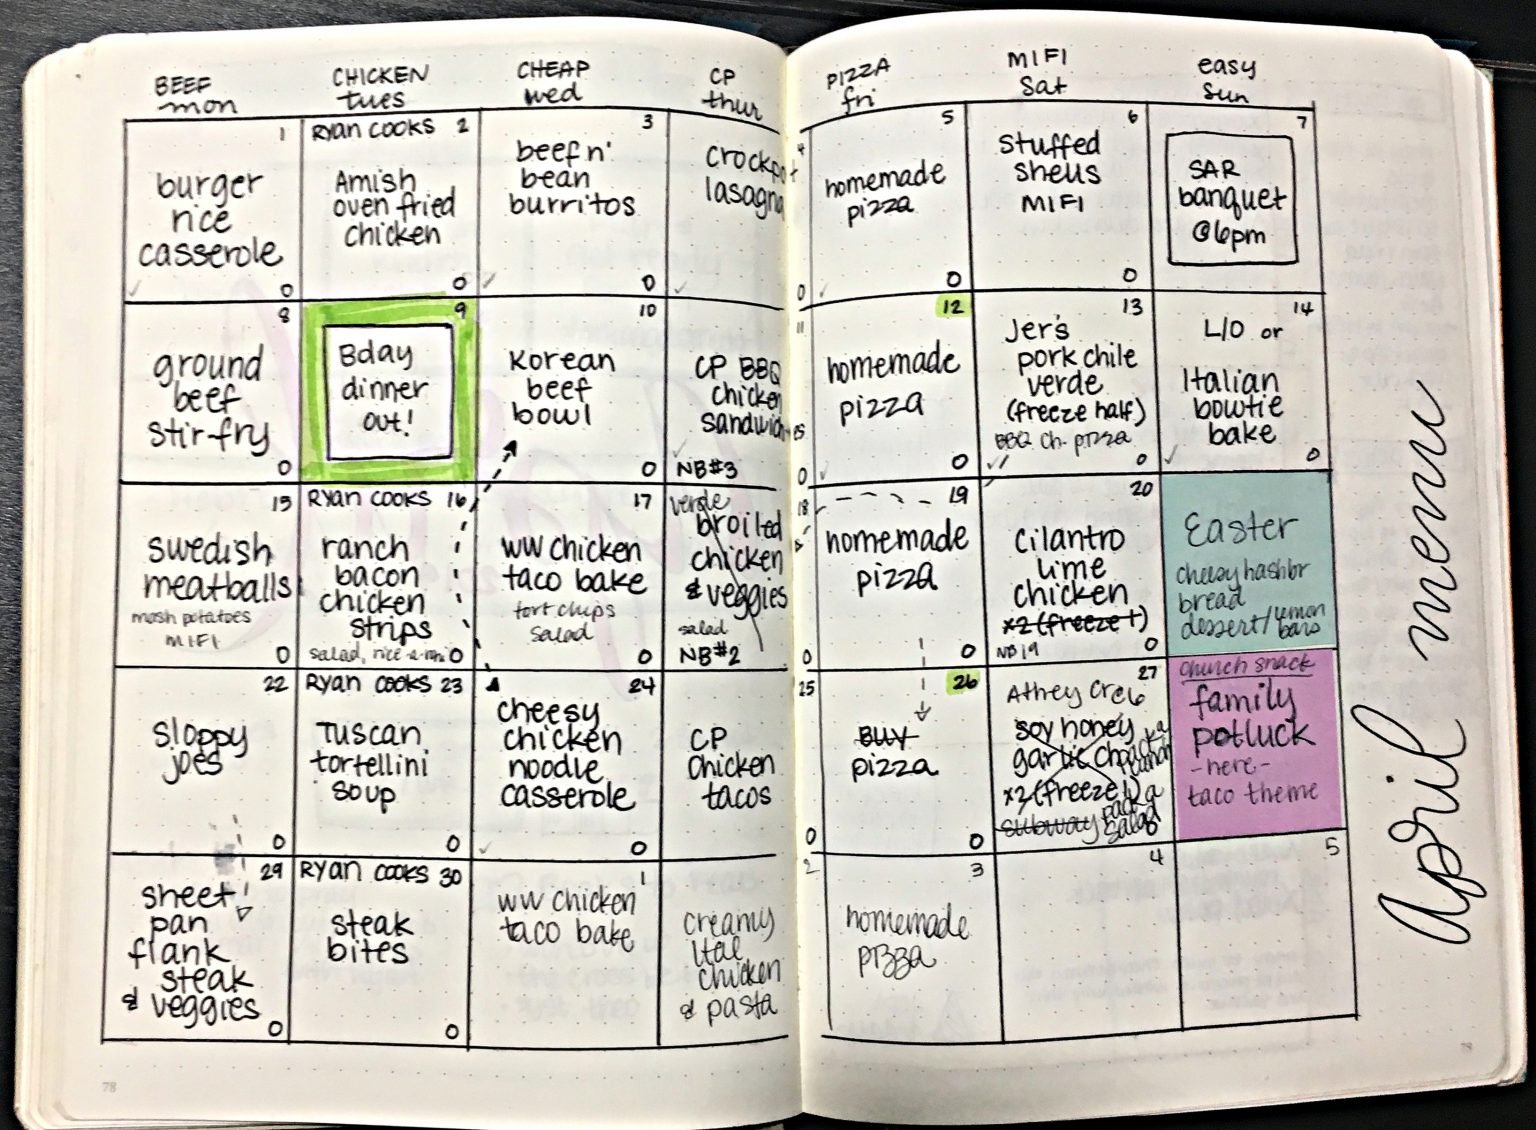 BEEF
mon
CHICKEN
tues
CHEAP
wed
CP
thur
PIZZA
fri
MIFI
Sat
easy
sun
1
burger
rice
casserole
0
RYAN COOKS 2
Amish
oven fried
chicken
0
3
beef n'
bean
burritos
0
4
crockpot
lasagna
0
5
homemade
pizza
0
6
stuffed
shells
MIFI
0
7
SAR
banquet
@6pm
8
ground
beef
stir-fry
0
9
Bday
dinner
out!
10
Korean
beef
bowl
0
11
CP BBQ
chicken
sandwich
NB#3
0
12
homemade
pizza
0
13
Jer's
pork chile
verde
(freeze half)
BBQ Ch. pizza
0
14
L/O or
Italian
bowtie
bake
0
15
swedish
meatballs
mash potatoes
MIFI
0
RYAN COOKS 16
ranch
bacon
chicken
strips
salad, rice-a-roni
0
17
WW chicken
taco bake
tort chips
salad
0
18
verde
broiled
chicken
& veggies
salad
NB#2
0
19
homemade
pizza
0
20
cilantro
lime
chicken
x2 (freeze 1)
NB 19
0
Easter
cheesy hashbr
bread
dessert/lemon
bars
22
sloppy
joes
0
RYAN COOKS 23
Tuscan
tortellini
soup
0
24
cheesy
chicken
noodle
casserole
0
25
CP
chicken
tacos
0
26
BUY
pizza
0
27
soy honey
garlic
x2 (freeze 1)
subway
salad
church snack
family
potluck
-here-
taco theme
29
sheet
pan
flank
steak
& veggies
0
RYAN COOKS 30
steak
bites
0
1
WW chicken
taco bake
2
creamy
Ital
chicken
& pasta
3
homemade
pizza
4
5
April menu
78
79